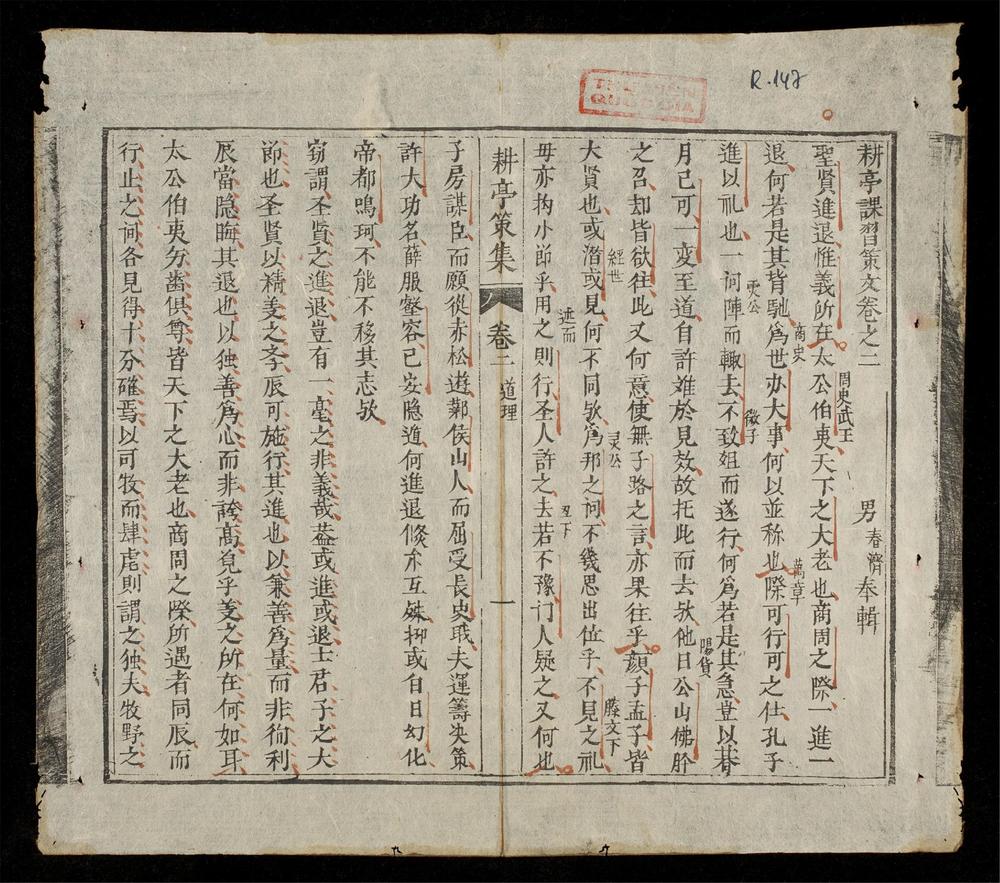 R.147
THƯ VIỆN
QUỐC GIA
耕亭課習策文卷之二
男 春濟 奉輯
聖賢進退惟義所在太公伯夷天下之大老也商周之際一進一
退何若是其皆馳爲世办大事何以並称也際可行可之仕孔子
進以礼也一问陣而輙去不致俎而遂行何爲若是其急豈以朞
月已可一变至道自許难於見效故托此而去欤他日公山佛肸
之召却皆欲往此又何意使無子路之言亦果往乎顔子孟子皆
大賢也或潜或見何不同欤爲邦之问不幾思出位乎不見之礼
毋亦拘小節乎用之則行圣人許之去若不豫门人疑之又何也
周史武王
商史
灵公
微子
萬章
陽貨
經世
灵公
滕文下
述而
丑下
耕亭策集
卷二
道理
一
子房謀臣而願從赤松遊鄴侯山人而屈受長史職夫運籌决策
許大功名薛服壑容已安隐遁何進退倏尔互殊抑或白日幻化
帝都鳴珂不能不移其志欤
窃謂圣賢之進退豈有一毫之非義哉盖或進或退士君子之大
節也圣賢以精义之斈辰可施行其進也以兼善爲量而非徇利
辰當隐晦其退也以独善爲心而非誇髙皃乎义之所在何如耳
太公伯夷分齒俱尊皆天下之大老也商周之際所遇者同辰而
行止之间各見得十分確焉以可牧而肆虐則謂之独夫牧野之